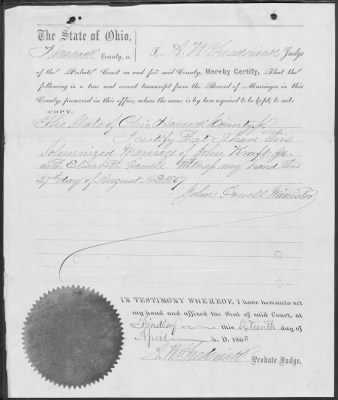 The State of Ohio,
Hancock County, ss. I, A. W. Frederick Judge
of the Probate Court in and for said County, Hereby Certify, That the
following is a true and correct transcript from the Record of Marriages in this
County, preserved in this office, where the same is by law required to be kept, to wit:
COPY:
The State of Ohio Hancock County ss
I certify that I have this
solemnized Marriage of John Kroft jr.
with Elizabeth Witness my hand this
27th day of August AD 1857
John Powell Minister
IN TESTIMONY WHEREOF, I have hereunto set
my hand and affixed the Seal of said Court, at
Findlay this Sixteenth day of
April A. D. 186
A. W. Frederick
Probate Judge.